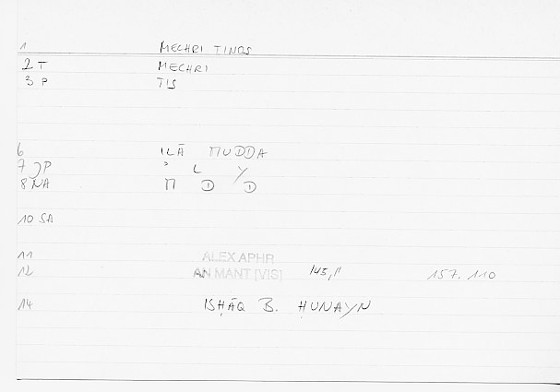 1 MECHRI TINOS
2 T MECHRI
3 P TIS
6 ILĀ MUDDA
7 JP ʾ L Y
8 NA M D D
10 SA
11 ALEX APHR
12 AN MANT [VIS] 143,1 157.110
14 ISḤĀQ B. ḤUNAYN